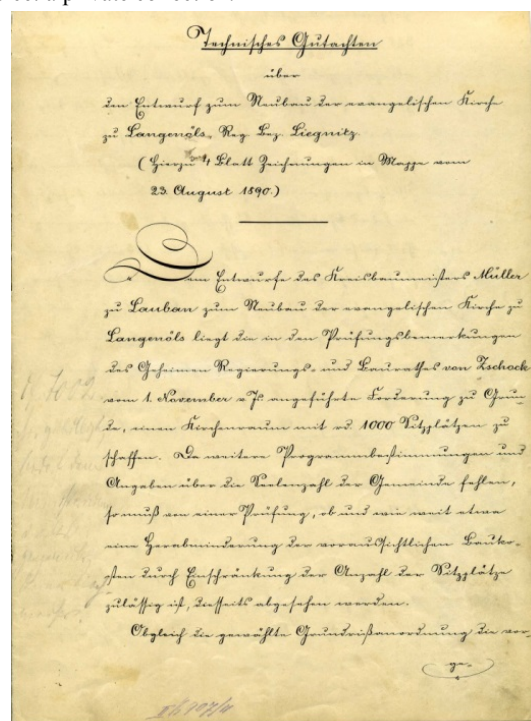 Technisches Gutachten
über
den Entwurf zum Neubau der evangelischen Kirche
zu Langenöls, Reg. Bez. Liegnitz.
(Hierzu 1 Blatt Zeichnungen in Mappe vom
23. August 1890.)
Dem Entwurfe des Kreisbaumeisters Müller
zu Lauban zum Neubau der evangelischen Kirche zu
Langenöls liegt die in den Prüfungsbemerkungen
des Geheimen Regierungs- und Baurathes von Zschock
vom 1. November v. Js. angeführte Forderung zu Grun-
de, einen Kirchenraum mit rd. 1000 Sitzplätzen zu
schaffen. Da weitere Programmbestimmungen und
Angaben über die Seelenzahl der Gemeinde fehlen,
so muß von einer Prüfung, ob und wie weit etwa
eine Herabminderung der voraussichtlichen Bauko-
sten durch Einschränkung der Anzahl der Sitzplätze
zulässig ist, diesseits abgesehen werden.
Obgleich die gewählte Grundrißanordnung die vor-